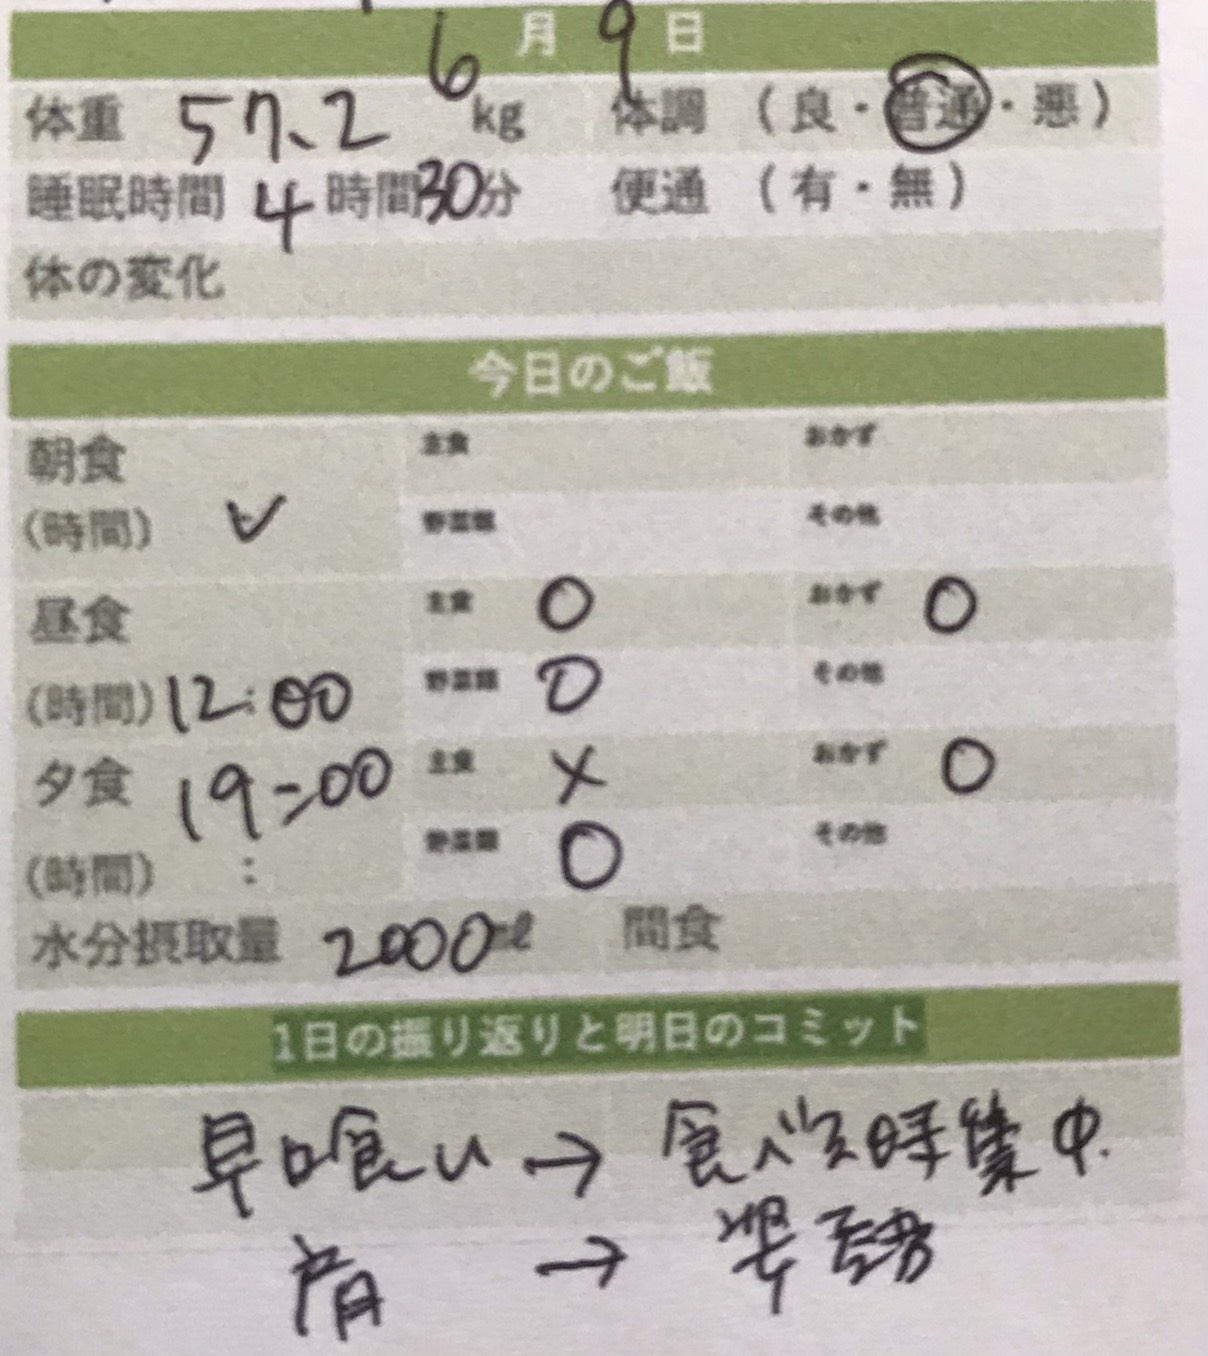 6月9日
体重 57.2 kg 体調 (良・普通・悪)
睡眠時間 4時間30分 便通 (有・無)
体の変化
今日のご飯
朝食 主食 おかず
(時間) ✓ 野菜類 その他
昼食 主食 〇 おかず 〇
(時間) 12:00 野菜類 〇 その他
夕食 19:00 主食 × おかず 〇
(時間) : 野菜類 〇 その他
水分摂取量 2000ml 間食
1日の振り返りと明日のコミット
早喰い → 食べる時集中.
肩 → 姿勢